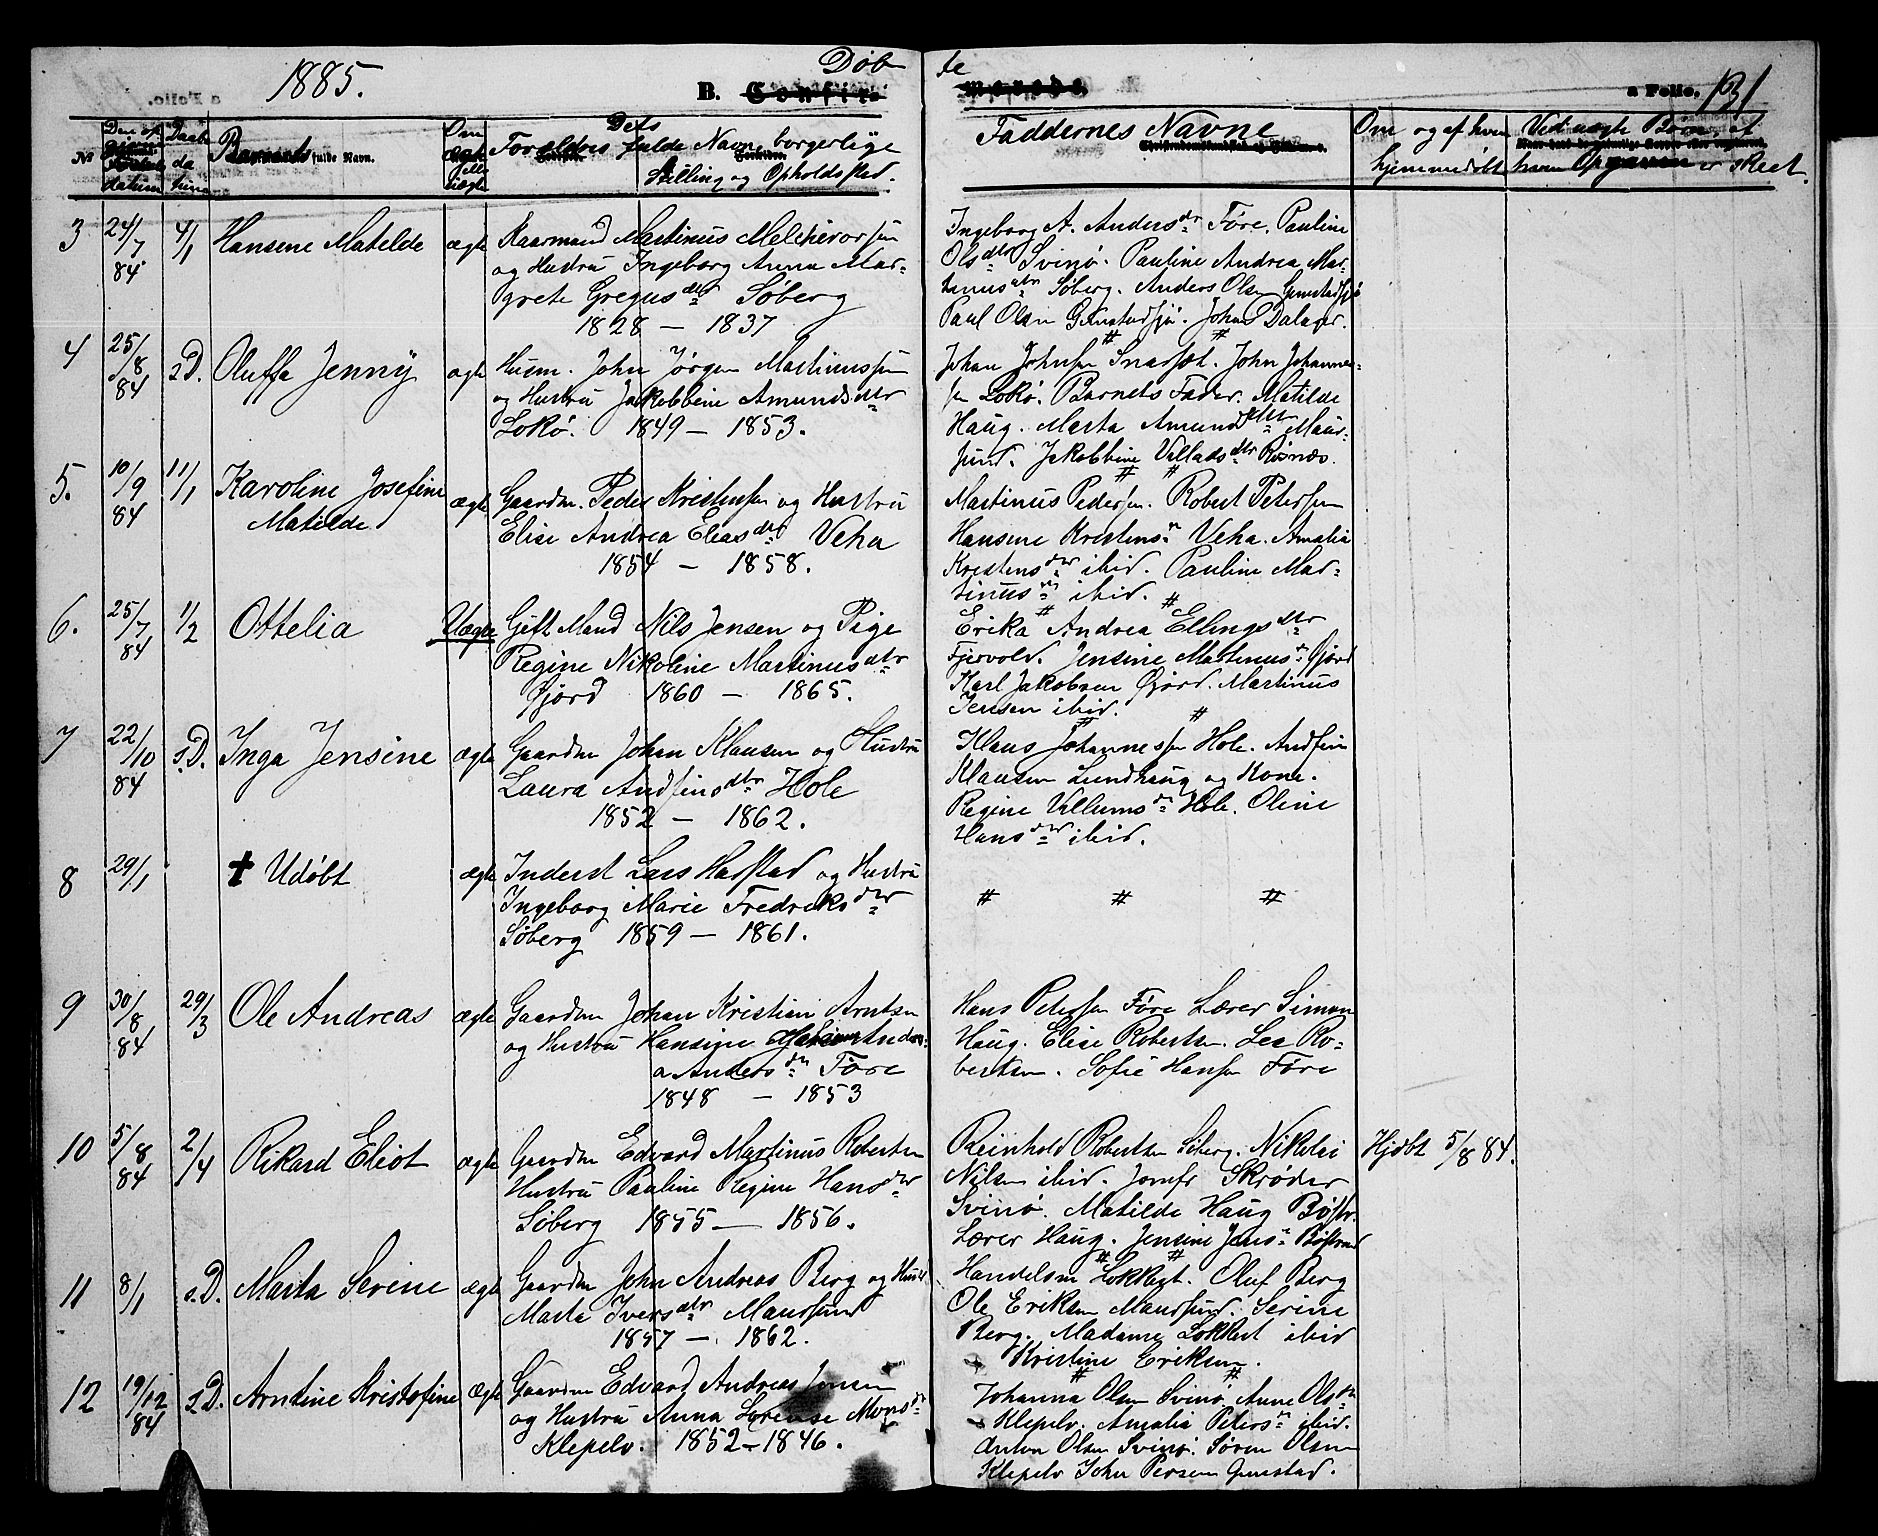 1885.
Døb
te
B. Confir-
merede.
a Folio. 131
№
Daabs
datum
Barnets fulde Navn.
Om ægte eller uægte
Dets
Forældres fulde Navn, borgerlige
Stilling og Opholdsted.
Faddernes Navne
Om og af hvem
hjemmedøbt
Ved uægte Børn, af
hvem Opgaven er skeet.
3 24/7 84 4/1 Hansene Matilde ægte Kaarmand Martinus Melchiorsen
og Hustru Ingeborg Anna Mar-
grete Gregus dtr Søberg
1828 — 1837
Ingeborg A. Anders dtr Føre. Pauline
Ols dtr Svinø. Pauline Andrea Mar-
tinus dtr Søberg. Anders Olsen Grunstadsjø
Paul Olsen Grunstadsjø. Johan Dalager.
4 25/8 84 s.D. Oluffa Jenny ægte Husm. John Jørgen Martinussen
og Hustru Jakobbine Amunds dtr
Lokø. 1849 — 1853.
Johan Johnsen Snarset. John Johannes-
sen Lokø. Barnets Fader. Matilde
Haug. Marta Amunds dtr Maur-
sund. Jakobbine Villads dtr Risnæs.
5. 10/9 84 11/1 Karoline Josefine
Matilde
ægte Gaardm. Peder Kristensen og Hustru
Elise Andrea Elias dtr Veha
1854 — 1858.
Martinus Pedersen. Robert Petersen
Hansene Kristens dr Veha. Amalia
Kristens dtr ibid. Pauline Mar-
tinus dr ibid.
6. 25/7 84 1/2 Ottelia Uægte Gift Mand Nils Jensen og Pige
Regine Nikoline Martinus dtr
Gjord 1860 — 1865.
Erika Andrea Ellings dtr
Fjervold. Jensine Martinus dr Gjord
Karl Jakobsen Gjord. Martinus
Jensen ibid.
7 22/10 84 s.D. Inga Jensine ægte Gaardm Johan Klausen og Hustru
Laura Andfins dtr Hole
1852 — 1862.
Klaus Johannessen Hole. Andfin
Klausen Lundhaug og Kone.
Regine Villums dr Hole. Oline
Hans dtr ibid.
8 29/1 ✝ Udøbt ægte Inderst Lars Harstad og Hustru
Ingeborg Marie Fredriks dtr
Søberg 1859 — 1861.
# # #
9 30/8 84 29/3 Ole Andreas ægte Gaardm Johan Kristian Arntsen
og Hustru Hansine Andrea-
a Anders dr Føre
1848 — 1853
Hans Petersen Føre Lærer Simon
Haug. Elise Robertsen. Lea Ro-
bertsen. Sofie Hansen Føre
10 5/8 84 2/4 Rikard Eliot ægte Gaardm Edvard Martinus Robertsen
Hustru Pauline Regine Hans dtr
Søberg 1855 — 1856.
Reinhold Robertsen Søberg. Nikolai
Nilsen ibid. Jomfr Skrøder
Svinø. Matilde Haug Bøstr.
Lærer Haug. Jensine Jens dr Bøstrand
Hjdøbt 5/8 84.
11 8/1 s.D. Marta Serine ægte Gaardm John Andreas Berg og Hustr
Marta Ivers dtr Maursund
1857 — 1862.
Handelsm Lokkert. Oluf Berg
Ole Eriksen Maursund. Serine
Berg. Madame Lokkert ibid
Kristine Eriksen.
12 19/12 84 s.D. Arntine Kristofine ægte Gaardm Edvard Andreas Jonsen
og Hustru Anna Lorense Mons dr
Klepelv. 1852 — 1846.
Johanna Olsen Svinø. Anne Ols dr
Klepelv. Amalia Peters dr ibid.
Anton Olsen Svinø. Søren Olsen
Klepelv John Persen Grunstad.